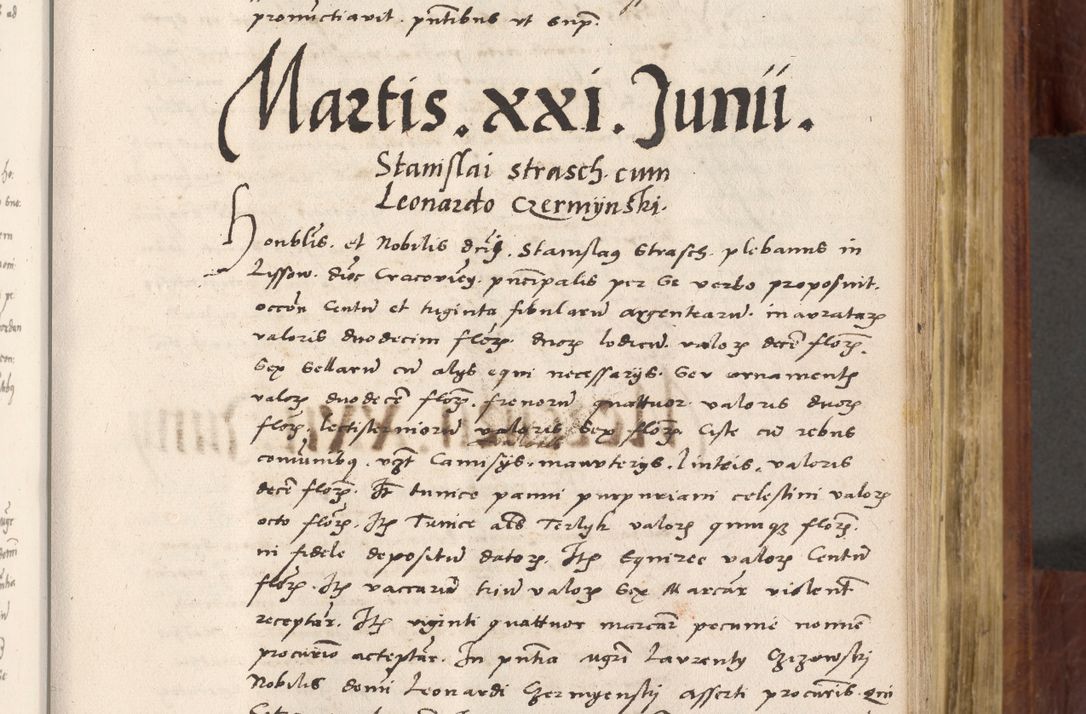 pronu͞ctiavit. pn̄tibus ut sup̄.
Martis. xxi. Junii.
Stanislai Strasch. cum
Leonardo Czermynski.
Honblīs. et Nobilis dn̄s. Stanislaus Strasch. plebanus in
Lissow. dioc̄ Cracovień. pn̄cipalis per se verbo proposuit.
occōn Centū et triginta fibularū argentearū. inauratarꝫ
valoris duodecim florꝫ. duorꝫ lodicū. valorꝫ decē florꝫ.
Sex Sellarū cū alijs equi necessarijs. Seu ornamentꝫ
valorꝫ duodecē florꝫ. frenorū quattuor valoris duorꝫ
florꝫ. lectisterniorū valoris Sex florꝫ Ciste cū rebus
comūnibꝫ. vꝫt Camisijs. manuterijs. linteis. valoris
decē florꝫ. It̄ tunice panni purpuriani celestini valorꝫ
octo florꝫ. Itꝫ Tunice als̄ Terlyk valorꝫ quinqꝫ florꝫ.
in fidele depositū datorꝫ. Itꝫ Equiree valorꝫ Centū
florꝫ. Itꝫ vaccarū triū valorꝫ Sex Marcar̄ violent̄
receptar̄. Itꝫ viginti quattuor marcar̄ pecunie nomīe
procurīo acceptar̄. In pn̄tia ngri Laurentij Czizowskj
Nobilis domī Leonardi Czermyenskj asserti procurīs. qui